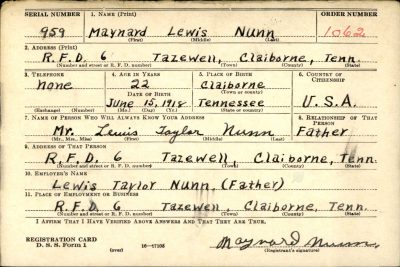 SERIAL NUMBER 1. NAME (Print) ORDER NUMBER
959 Maynard Lewis Nunn 1062
(First) (Middle) (Last)
2. ADDRESS (Print)
R.F.D. 6 Tazewell, Claiborne, Tenn.
(Number and street or R. F. D. number) (Town) (County) (State)
3. TELEPHONE 4. AGE IN YEARS 5. PLACE OF BIRTH 6. COUNTRY OF CITIZENSHIP
none 22 Claiborne
DATE OF BIRTH (Town or county)
June 15, 1918 Tennessee U.S.A.
(Exchange) (Number) (Mo.) (Day) (Yr.) (State or country)
7. NAME OF PERSON WHO WILL ALWAYS KNOW YOUR ADDRESS 8. RELATIONSHIP OF THAT PERSON
Mr. Lewis Taylor Nunn Father
(Mr., Mrs., Miss) (First) (Middle) (Last)
9. ADDRESS OF THAT PERSON
R.F.D. 6 Tazewell, Claiborne, Tenn.
(Number and street or R. F. D. number) (Town) (County) (State)
10. EMPLOYER'S NAME
Lewis Taylor Nunn, (Father)
11. PLACE OF EMPLOYMENT OR BUSINESS
R.F.D. 6 Tazewell, Claiborne, Tenn.
(Number and street or R. F. D. number) (Town) (County) (State)
I AFFIRM THAT I HAVE VERIFIED ABOVE ANSWERS AND THAT THEY ARE TRUE.
REGISTRATION CARD
D. S. S. Form 1 (over) 16—17105 Maynard Nunn
(Registrant's signature)